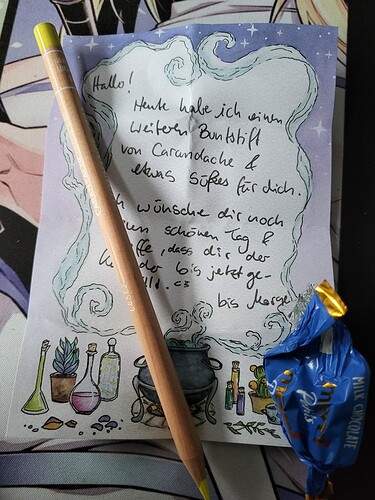 Hallo!
Heute habe ich einen
weiteren Buntstift
von Carandache &
etwas Süßes für dich.
wünsche dir noch
schönen Tag &
, dass dir der
der bis jetzt ge-
<3
bis Morge
MILK CHOCOLATE